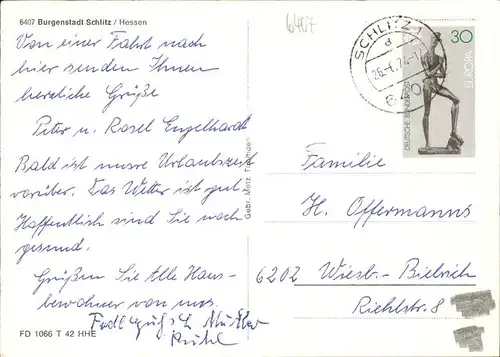 6407 Burgenstadt Schlitz / Hessen
6407
Von einer Fahrt nach
hier senden Ihnen
herzliche Grüße
Peter u. Rosel Engelhardt
Bald ist unsre Urlaubszeit
vorüber. Das Wetter ist gut
Hoffentlich sind Sie noch
gesund.
Grüßen Sie Alle Haus-
bewohner von uns.
FD 1066 T 42 HHE
Gebr. Metz Tübingen
SCHLITZ 1
a
30
EUROPA
DEUTSCHE BUNDESPOST
Familie
H. Offermanns
6202 Wiesb.-Biebrich
Riehlstr. 8